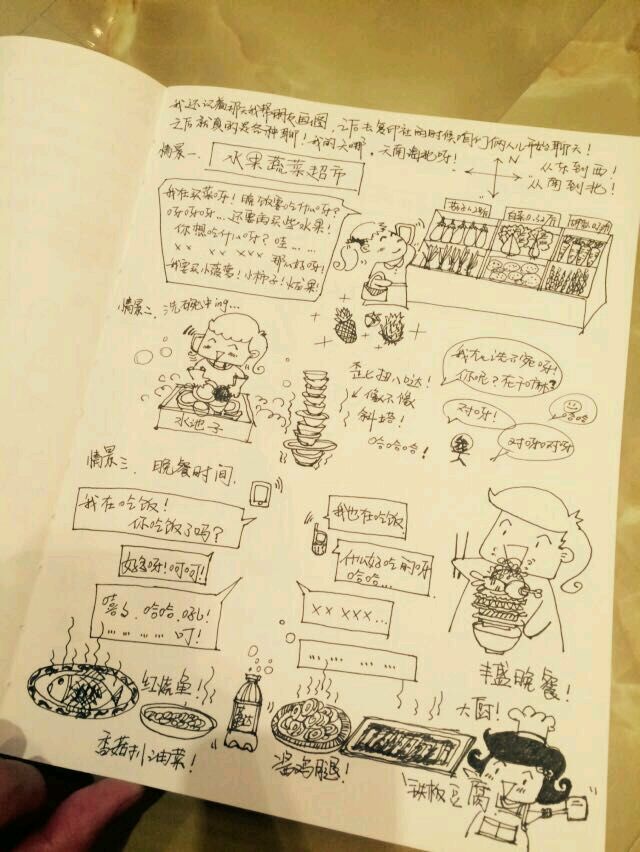 我还记着那天我帮朋友画图，之后去复印社的时候咱们俩人儿开始聊天！
之后就真的是各种聊！我的天哪，天南海北呀！
N
从东到西！
从南到北！
情景一、
水果蔬菜超市
我在买菜呀！晚饭要吃什么呀？
呀呀呀…还要再买些水果！
你想吃什么呀？哇……
×× ××× 那么好呀！
我要买小菠萝！小柿子！火龙果！
情景二、洗碗中ing…
水池子
歪七扭八哒！
像不像
斜塔！
哈哈哈！
我在洗碗呀！
你呢？在干嘛？
哈哈
对呀！
对呀对呀
情景三、晚餐时间、
我在吃饭！
你吃饭了吗？
好多呀！呵呵！
嘻，哈哈，吼！
…… …… 叮！
我也在吃饭
什么好吃的呀
哈哈…
×× ×××…
… … … …
丰盛晚餐！
红烧鱼！
香菇扒油菜！
酱鸡腿！
铁板豆腐
大厨！